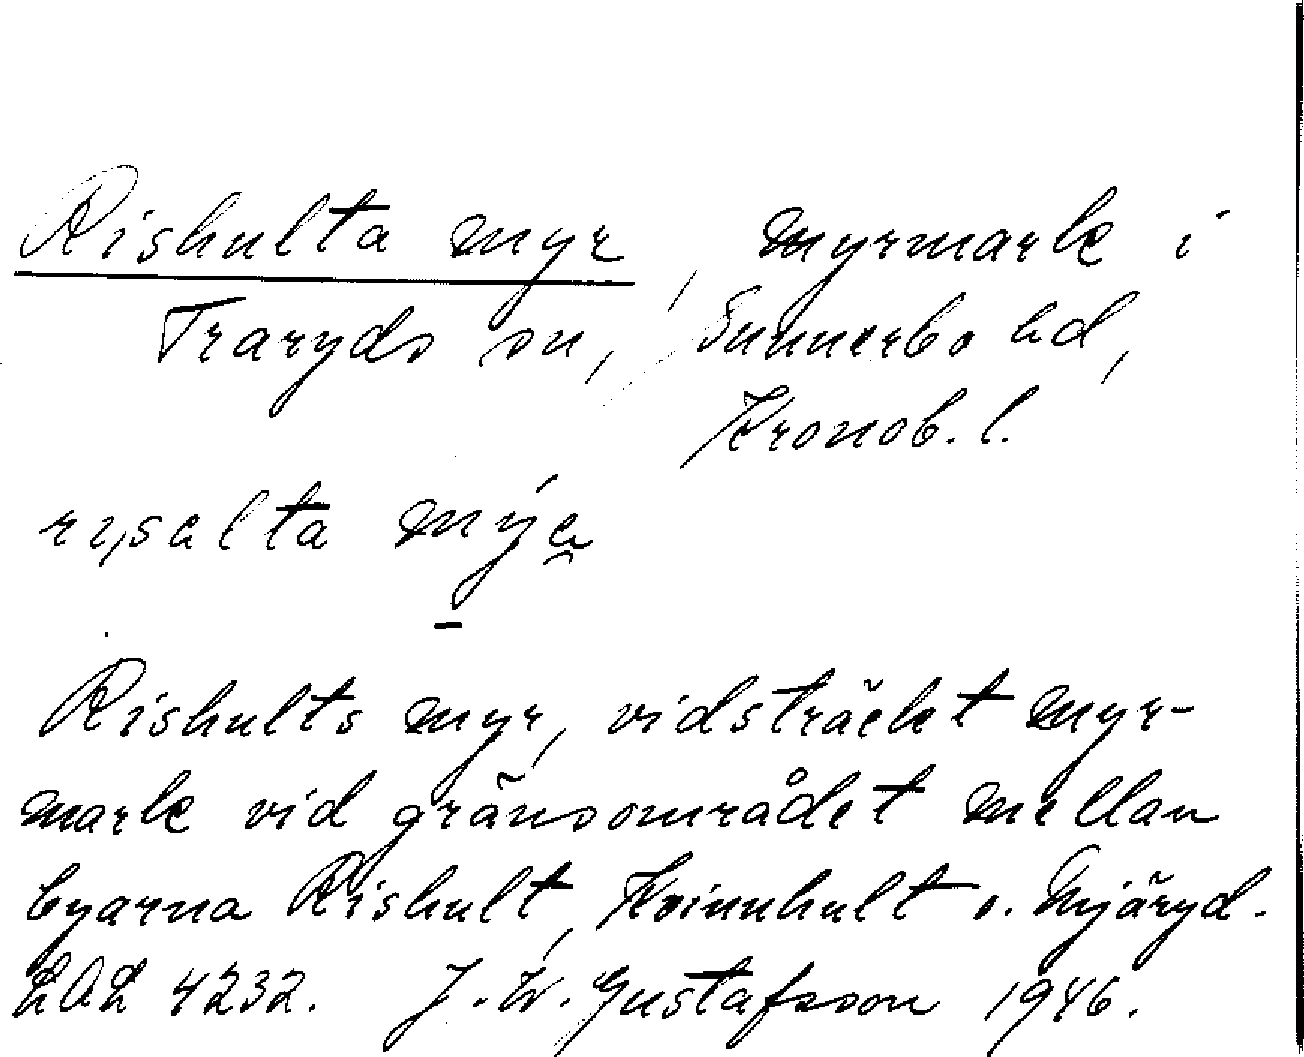 Rishulta myr, myrmark i
Traryds sn, Sunnerbo hd,
Kronob. l.
Rishults myr, vidsträckt myr-
mark vid gränsområdet mellan
byarna Rishult, Kvinnhult o. Mjäryd.
LAL 4232. J. W. Gustafsson 1946.